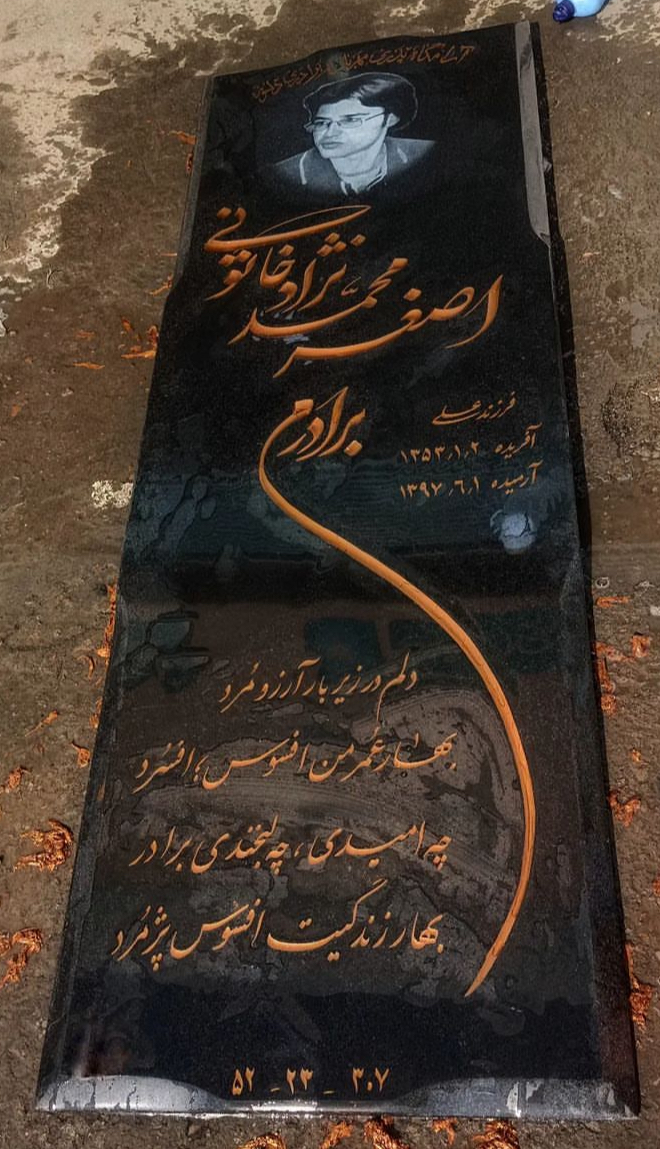 آرامگاه
اصغر محمدنژاد خاتونی
برادرم
فرزند علی
آفریده ۱۳۵۳٫۱٫۲
آرمیده ۱۳۹۷٫۶٫۱
دلم در زیر بار آرزو مُرد
بهار عُمر من افسوس؛ افسُرد
چه امیدی، چه لبخندی برادر
بهار زندگیت افسوس پژمُرد
۵۲ - ۲۳ - ۳۰۷